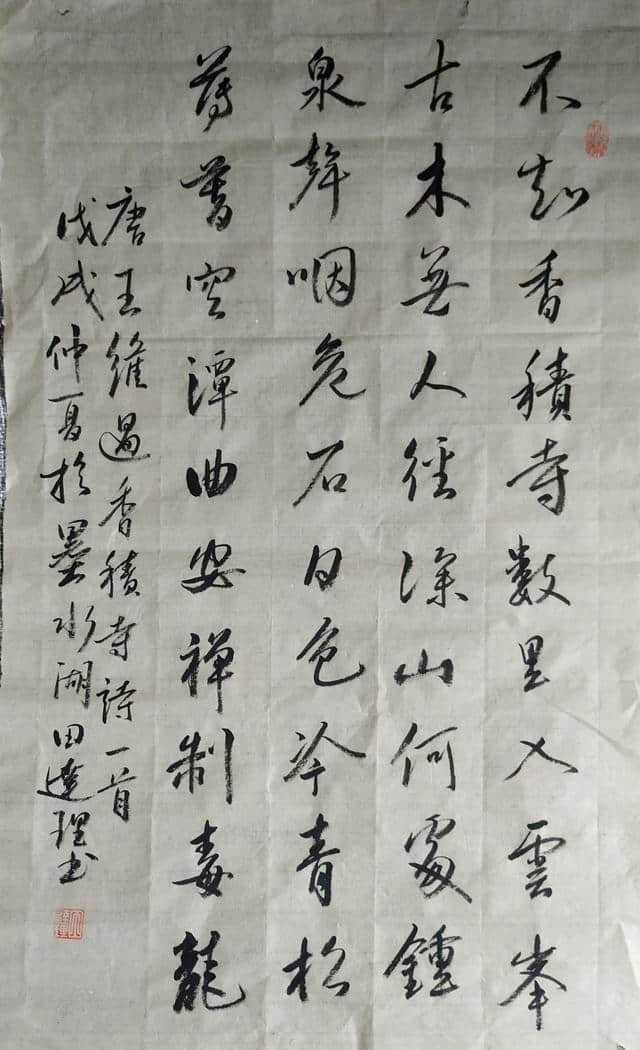 不知香積寺數里入雲峯
古木無人徑深山何處鍾
泉聲咽危石日色冷青松
薄暮空潭曲安禪制毒龍
唐王維過香積寺詩一首
戊戌仲夏於墨水湖田達理书